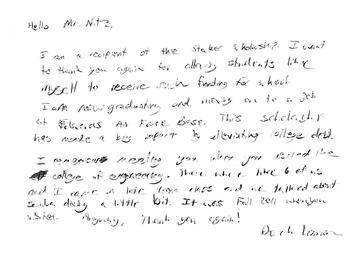 Hello Mr. Nitz,
I am a recipient of the scholarship. I want
to thank you again for allowing students like
myself to receive such funding for school.
I am now graduating and moving on to a job
at Edwards Air Force Base. This scholarship
has made a big impact by alleviating college debt.
I meeting you when you visited the
college of engineering. There where like 6 of us
and I came in late from class and we talked about
a little bit. It was Fall 2011 when you
visited. Anyway, Thank you again!